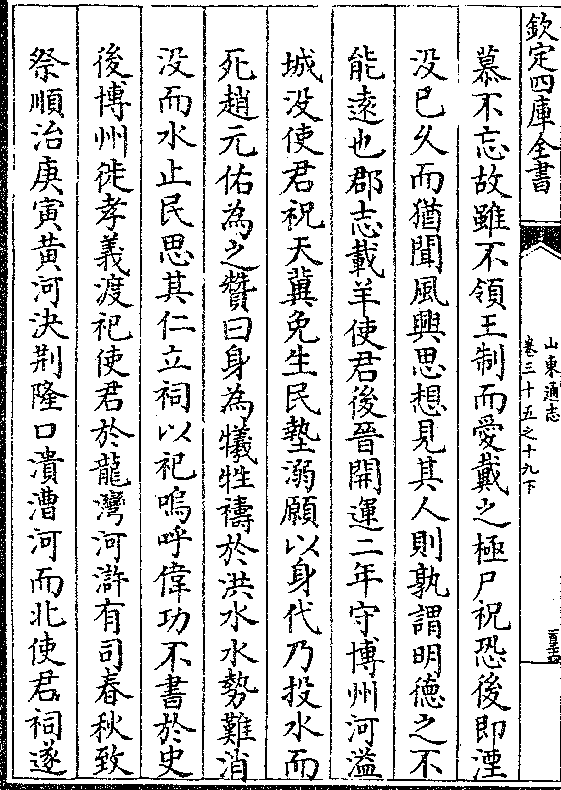 欽定四庫全書
山東通志
卷三十五之十九下
慕不忘故雖不領王制而愛戴之極尸祝恐後即湮
没已久而猶聞風興思想見其人則孰謂明德之不
能逺也郡志載羊使君後晉開運二年守博州河溢
城没使君祝天冀免生民墊溺願以身代乃投水而
死趙元佑為之贊曰身為犧牲禱於洪水水勢難消
没而水止民思其仁立祠以祀嗚呼偉功不書於史
後博州徙孝義渡祀使君於龍灣河滸有司春秋致
祭順治庚寅黃河決荆隆口潰漕河而北使君祠遂